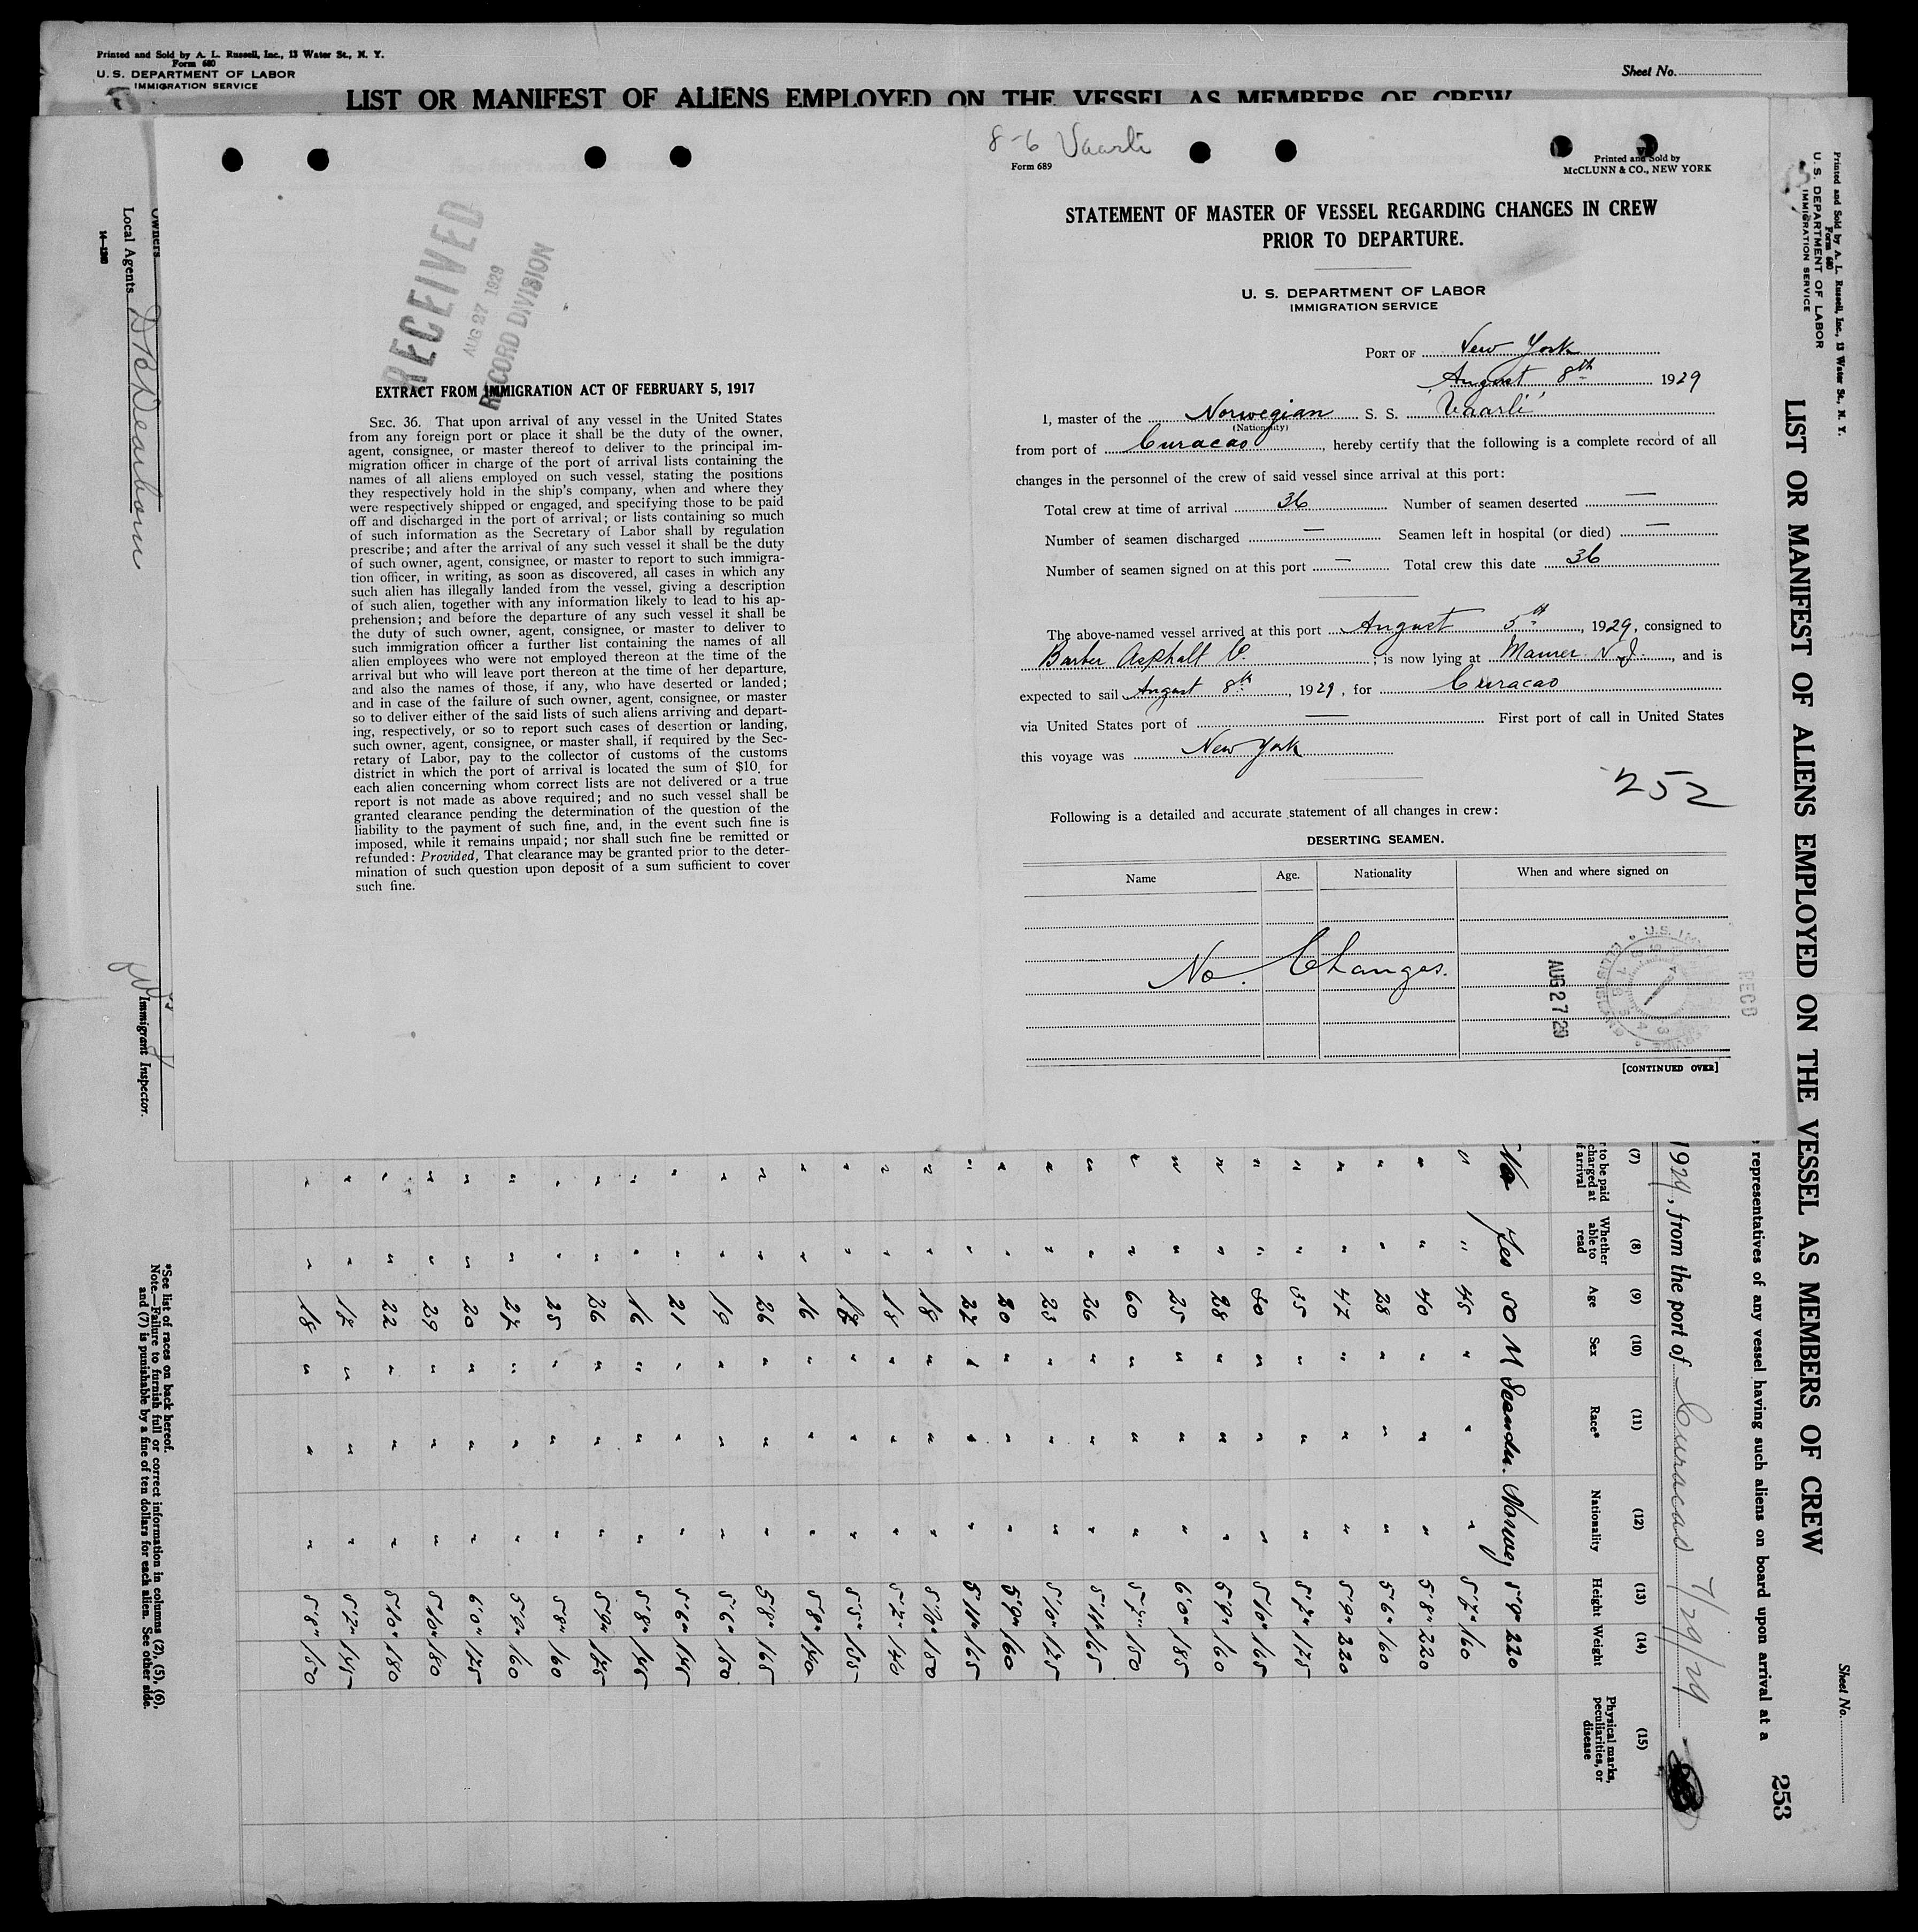 Printed and Sold by A. L. Russell, Inc., 13 Water St., N. Y.
Form 680
U. S. DEPARTMENT OF LABOR
IMMIGRATION SERVICE
Sheet No.
LIST OR MANIFEST OF ALIENS EMPLOYED ON THE VESSEL AS MEMBERS OF CREW
8-6 Vaarli
Form 689
Printed and Sold by
McCLUNN & CO., NEW YORK
STATEMENT OF MASTER OF VESSEL REGARDING CHANGES IN CREW
PRIOR TO DEPARTURE.
U. S. DEPARTMENT OF LABOR
IMMIGRATION SERVICE
PORT OF New York
August 8th 1929
I, master of the Norwegian S. S. "Vaarli"
(Nationality)
from port of Curacao, hereby certify that the following is a complete record of all
changes in the personnel of the crew of said vessel since arrival at this port:
Total crew at time of arrival 36 Number of seamen deserted —
Number of seamen discharged — Seamen left in hospital (or died) —
Number of seamen signed on at this port — Total crew this date 36
The above-named vessel arrived at this port August 5th, 1929, consigned to
Barber Asphalt C.; is now lying at Maurer N.J., and is
expected to sail August 8th, 1929, for Curacao
via United States port of — First port of call in United States
this voyage was New York
252
Following is a detailed and accurate statement of all changes in crew:
DESERTING SEAMEN.
Name Age. Nationality When and where signed on
No. Changes.
AUG 27 29
RECD
[CONTINUED OVER]
RECEIVED
AUG 27 1929
RECORD DIVISION
EXTRACT FROM IMMIGRATION ACT OF FEBRUARY 5, 1917
SEC. 36. That upon arrival of any vessel in the United States
from any foreign port or place it shall be the duty of the owner,
agent, consignee, or master thereof to deliver to the principal im-
migration officer in charge of the port of arrival lists containing the
names of all aliens employed on such vessel, stating the positions
they respectively hold in the ship's company, when and where they
were respectively shipped or engaged, and specifying those to be paid
off and discharged in the port of arrival; or lists containing so much
of such information as the Secretary of Labor shall by regulation
prescribe; and after the arrival of any such vessel it shall be the duty
of such owner, agent, consignee, or master to report to such immigra-
tion officer, in writing, as soon as discovered, all cases in which any
such alien has illegally landed from the vessel, giving a description
of such alien, together with any information likely to lead to his ap-
prehension; and before the departure of any such vessel it shall be
the duty of such owner, agent, consignee, or master to deliver to
such immigration officer a further list containing the names of all
alien employees who were not employed thereon at the time of the
arrival but who will leave port thereon at the time of her departure,
and also the names of those, if any, who have deserted or landed;
and in case of the failure of such owner, agent, consignee, or master
so to deliver either of the said lists of such aliens arriving and depart-
ing, respectively, or so to report such cases of desertion or landing,
such owner, agent, consignee, or master shall, if required by the Sec-
retary of Labor, pay to the collector of customs of the customs
district in which the port of arrival is located the sum of $10 for
each alien concerning whom correct lists are not delivered or a true
report is not made as above required; and no such vessel shall be
granted clearance pending the determination of the question of the
liability to the payment of such fine, and, in the event such fine is
imposed, while it remains unpaid; nor shall such fine be remitted or
refunded: Provided, That clearance may be granted prior to the deter-
mination of such question upon deposit of a sum sufficient to cover
such fine.
Printed and Sold by A. L. Russell, Inc., 13 Water St., N. Y.
Form 680
U. S. DEPARTMENT OF LABOR
IMMIGRATION SERVICE
Sheet No.
LIST OR MANIFEST OF ALIENS EMPLOYED ON THE VESSEL AS MEMBERS OF CREW
253
representatives of any vessel having such aliens on board upon arrival at a
1929, from the port of Curacao 7/29/29
(7) (8) (9) (10) (11) (12) (13) (14) (15)
to be paid
charged at
f arrival
Whether able to read
Age
Sex
Race*
Nationality
Height
Weight
Physical marks, peculiarities, or disease
No Yes 50 M Scandn. Norweg 5'9" 220
" " 45 " " " 5'7" 160
" " 40 " " " 5'8" 220
" " 28 " " " 5'6" 160
" " 47 " " " 5'9" 220
" " 35 " " " 5'7" 175
" " " " " 5'10" 165
" " 28 " " " 5'9" 160
" " 25 " " " 6'0" 185
" " 60 " " " 5'7" 150
" " 26 " " " 5'11" 165
" " 25 " " " 5'10" 175
" " " " " 5'9" 160
" " 27 " " " 5'11" 165
" " 18 " " " 5'10" 150
" " 18 " " " 5'7" 140
" " " " " 5'5" 155
" " 16 " " " 5'8" 140
" " 26 " " " 5'8" 165
" " 19 " " " 5'6" 150
" " 21 " " " 5'6" 145
" " 16 " " " 5'8" 145
" " 26 " " " 5'9" 175
" " 25 " " " 5'8" 160
" " 27 " " " 5'9" 160
" " 20 " " " 6'0" 175
" " 29 " " " 5'10" 180
" " 22 " " " 5'10" 180
" " 17 " " " 5'7" 145
" " 18 " " " 5'8" 150
*See list of races on back hereof.
Note.—Failure to furnish full or correct information in columns (2), (5), (6),
and (7) is punishable by a fine of ten dollars for each alien. See other side.
Owners
Local Agents D B Dearborn
14—1240
Immigrant Inspector.